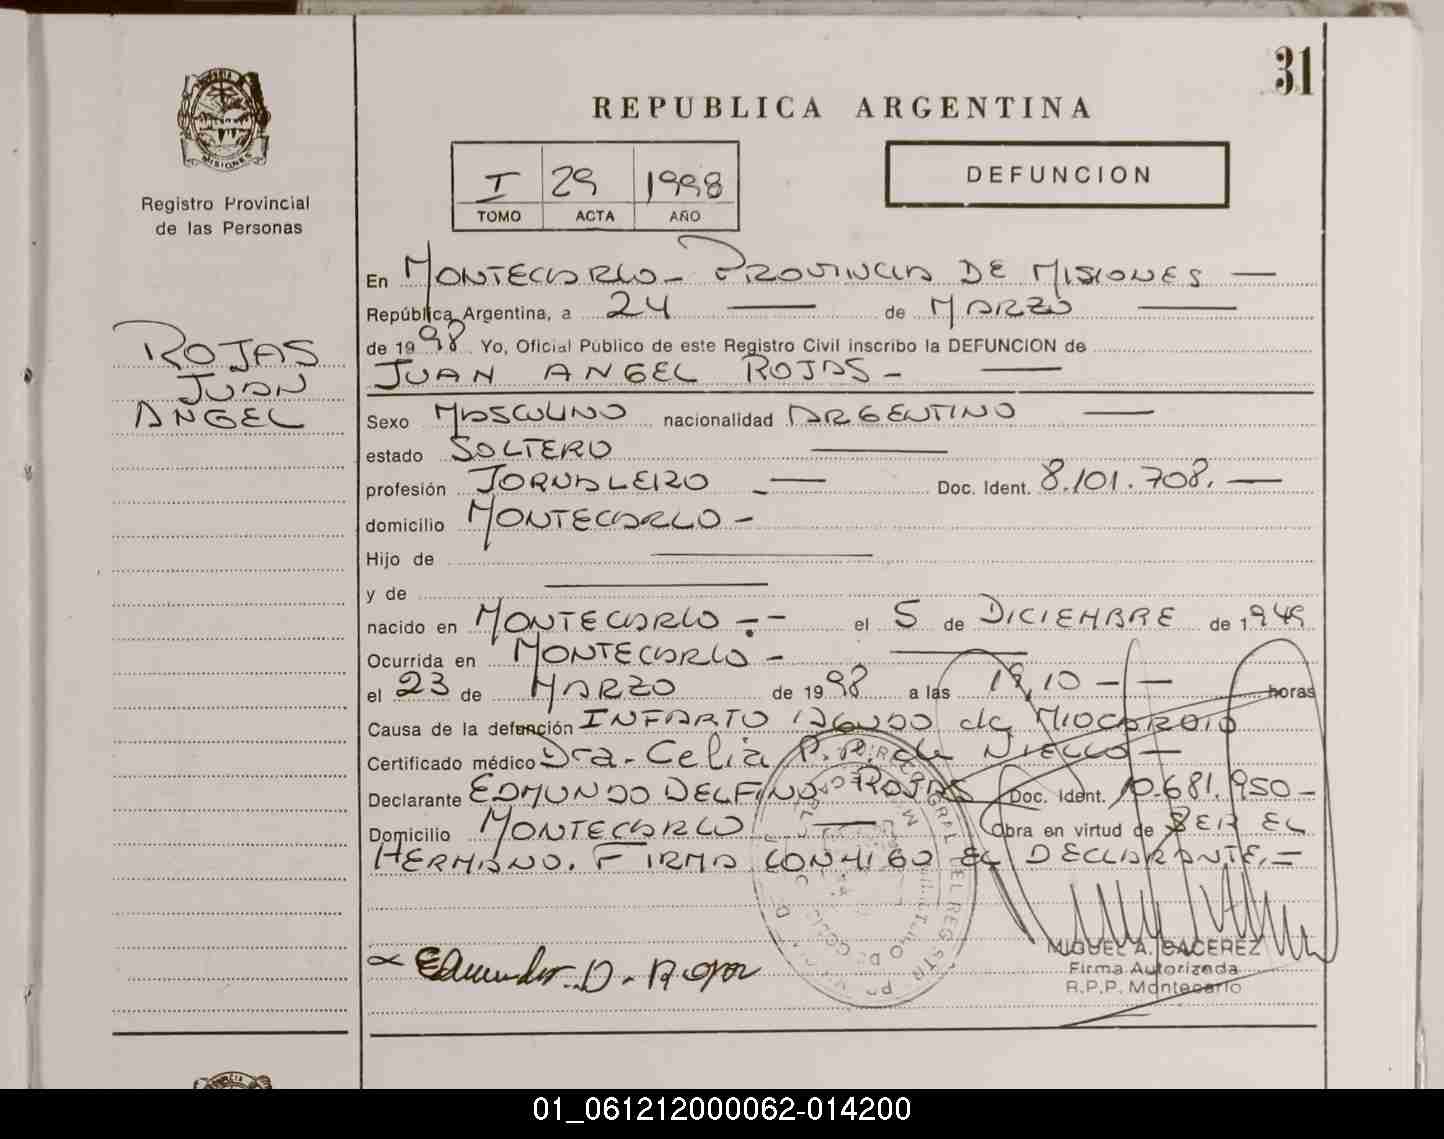 31
REPUBLICA ARGENTINA
MISIONES
Registro Provincial
de las Personas
I 29 1998
TOMO ACTA AÑO
DEFUNCION
En MONTECARLO - PROVINCIA DE MISIONES —
República Argentina, a 24 — de MARZO —
de 1998 Yo, Oficial Público de este Registro Civil inscribo la DEFUNCION de
JUAN ANGEL ROJAS - —
ROJAS
JUAN
ANGEL
Sexo MASCULINO nacionalidad ARGENTINO —
estado SOLTERO —
profesión JORNALERO - — Doc. Ident. 8.101.708. —
domicilio MONTECARLO -
Hijo de —
y de —
nacido en MONTECARLO - - el 5 de DICIEMBRE de 1949
Ocurrida en MONTECARLO - —
el 23 de MARZO de 1998 a las 19,10 — — horas
Causa de la defunción INFARTO AGUDO de MIOCARDIO
Certificado médico Dra. Celia P. R. de NIELLO —
Declarante EDMUNDO DELFINO ROJAS Doc. Ident. 10.681.950 -
Domicilio MONTECARLO — Obra en virtud de SER EL
HERMANO. FIRMA CONMIGO EL DECLARANTE. -
Edmundo D. Rojas
MIGUEL A. CACEREZ
Firma Autorizada
R.P.P. Montecarlo
01_061212000062-014200